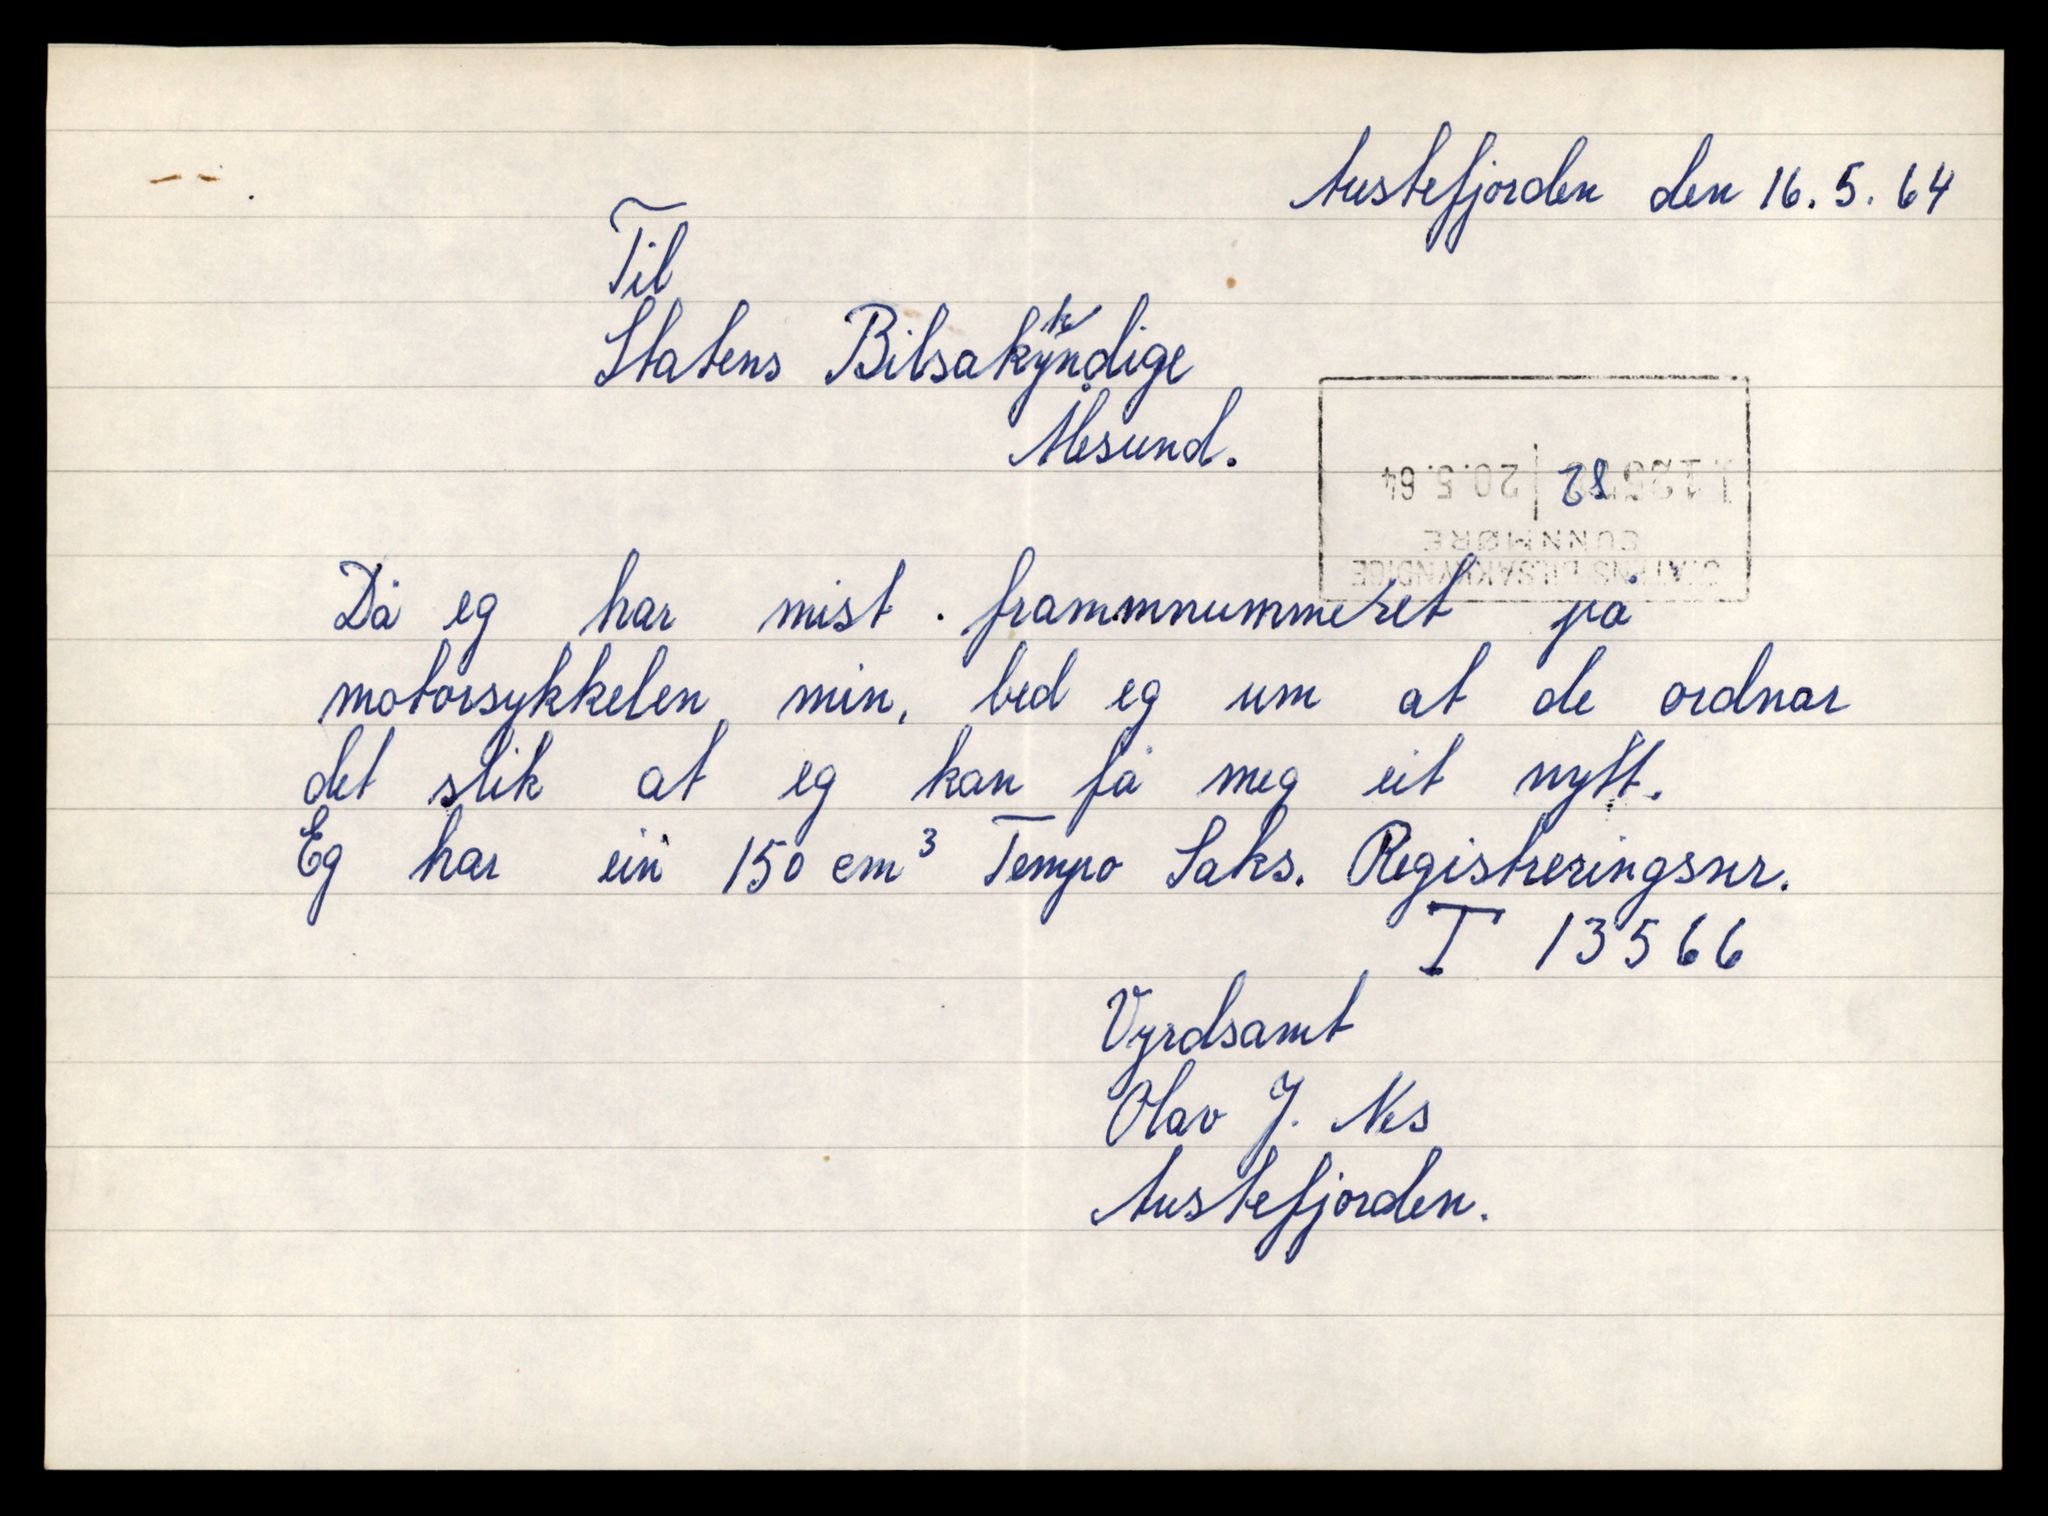 Austefjorden den 16.5.64
Til
Statens Bilsakkyndige
Ålesund.
STATENS BILSAKKYNDIGE
SUNNMØRE
20.5.64
Då eg har mist frammnummeret på
motorsykkelen min, bed eg um at de ordnar
det slik at eg kan få meg eit nytt.
Eg har ein 150 cm³ Tempo Saks. Registreringsnr.
T 13566
Vyrdsamt
Olav J. Nes
Austefjorden.